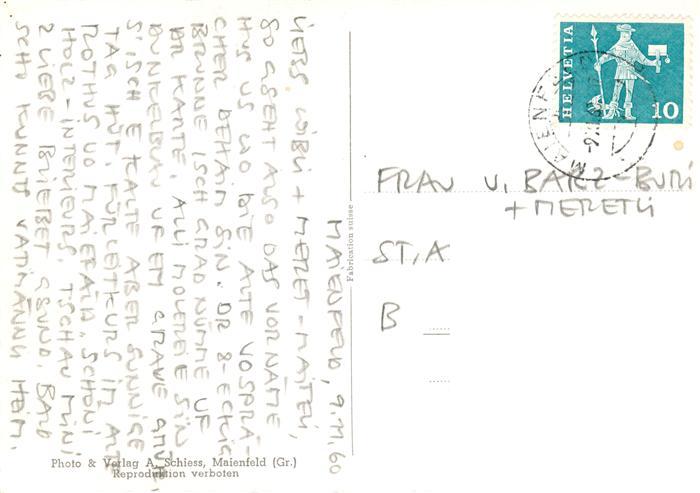 MAIENFELD, 9.11.60
LIEBS WIBLI + MERET-MAITELI,
SO GSEHT ALSO DAS VORNÄME
HUS US WO DIE ALTE VOSPRÄ-
CHER DEHAIM SIN. DR 8-ECKIG
BRUNNE ISCH GRAD NÜMME UF
DR KARTE. ALLI MOLEREIE SIN
DUNKELBLAU UF EM GRAUE
S'ISCH E KALTE ABER SUNNIGE
TAG HÜT. FÜR LEITKURS IM ALTE
ROTHUS VO MAIEFÄLD. SCHÖNI
HOLZ-INTERIEURS. TSCHAU MINI
2 LIEBE BLIEBET GSUND. BALD
SCHO KUNNT VATIMANNLI HEIM.
Photo & Verlag A. Schiess, Maienfeld (Gr.)
Reproduktion verboten
Fabrication suisse
HELVETIA
10
MAIENFELD
FRAU U. BARZ-BURI
+ MERETLI
ST. A
B